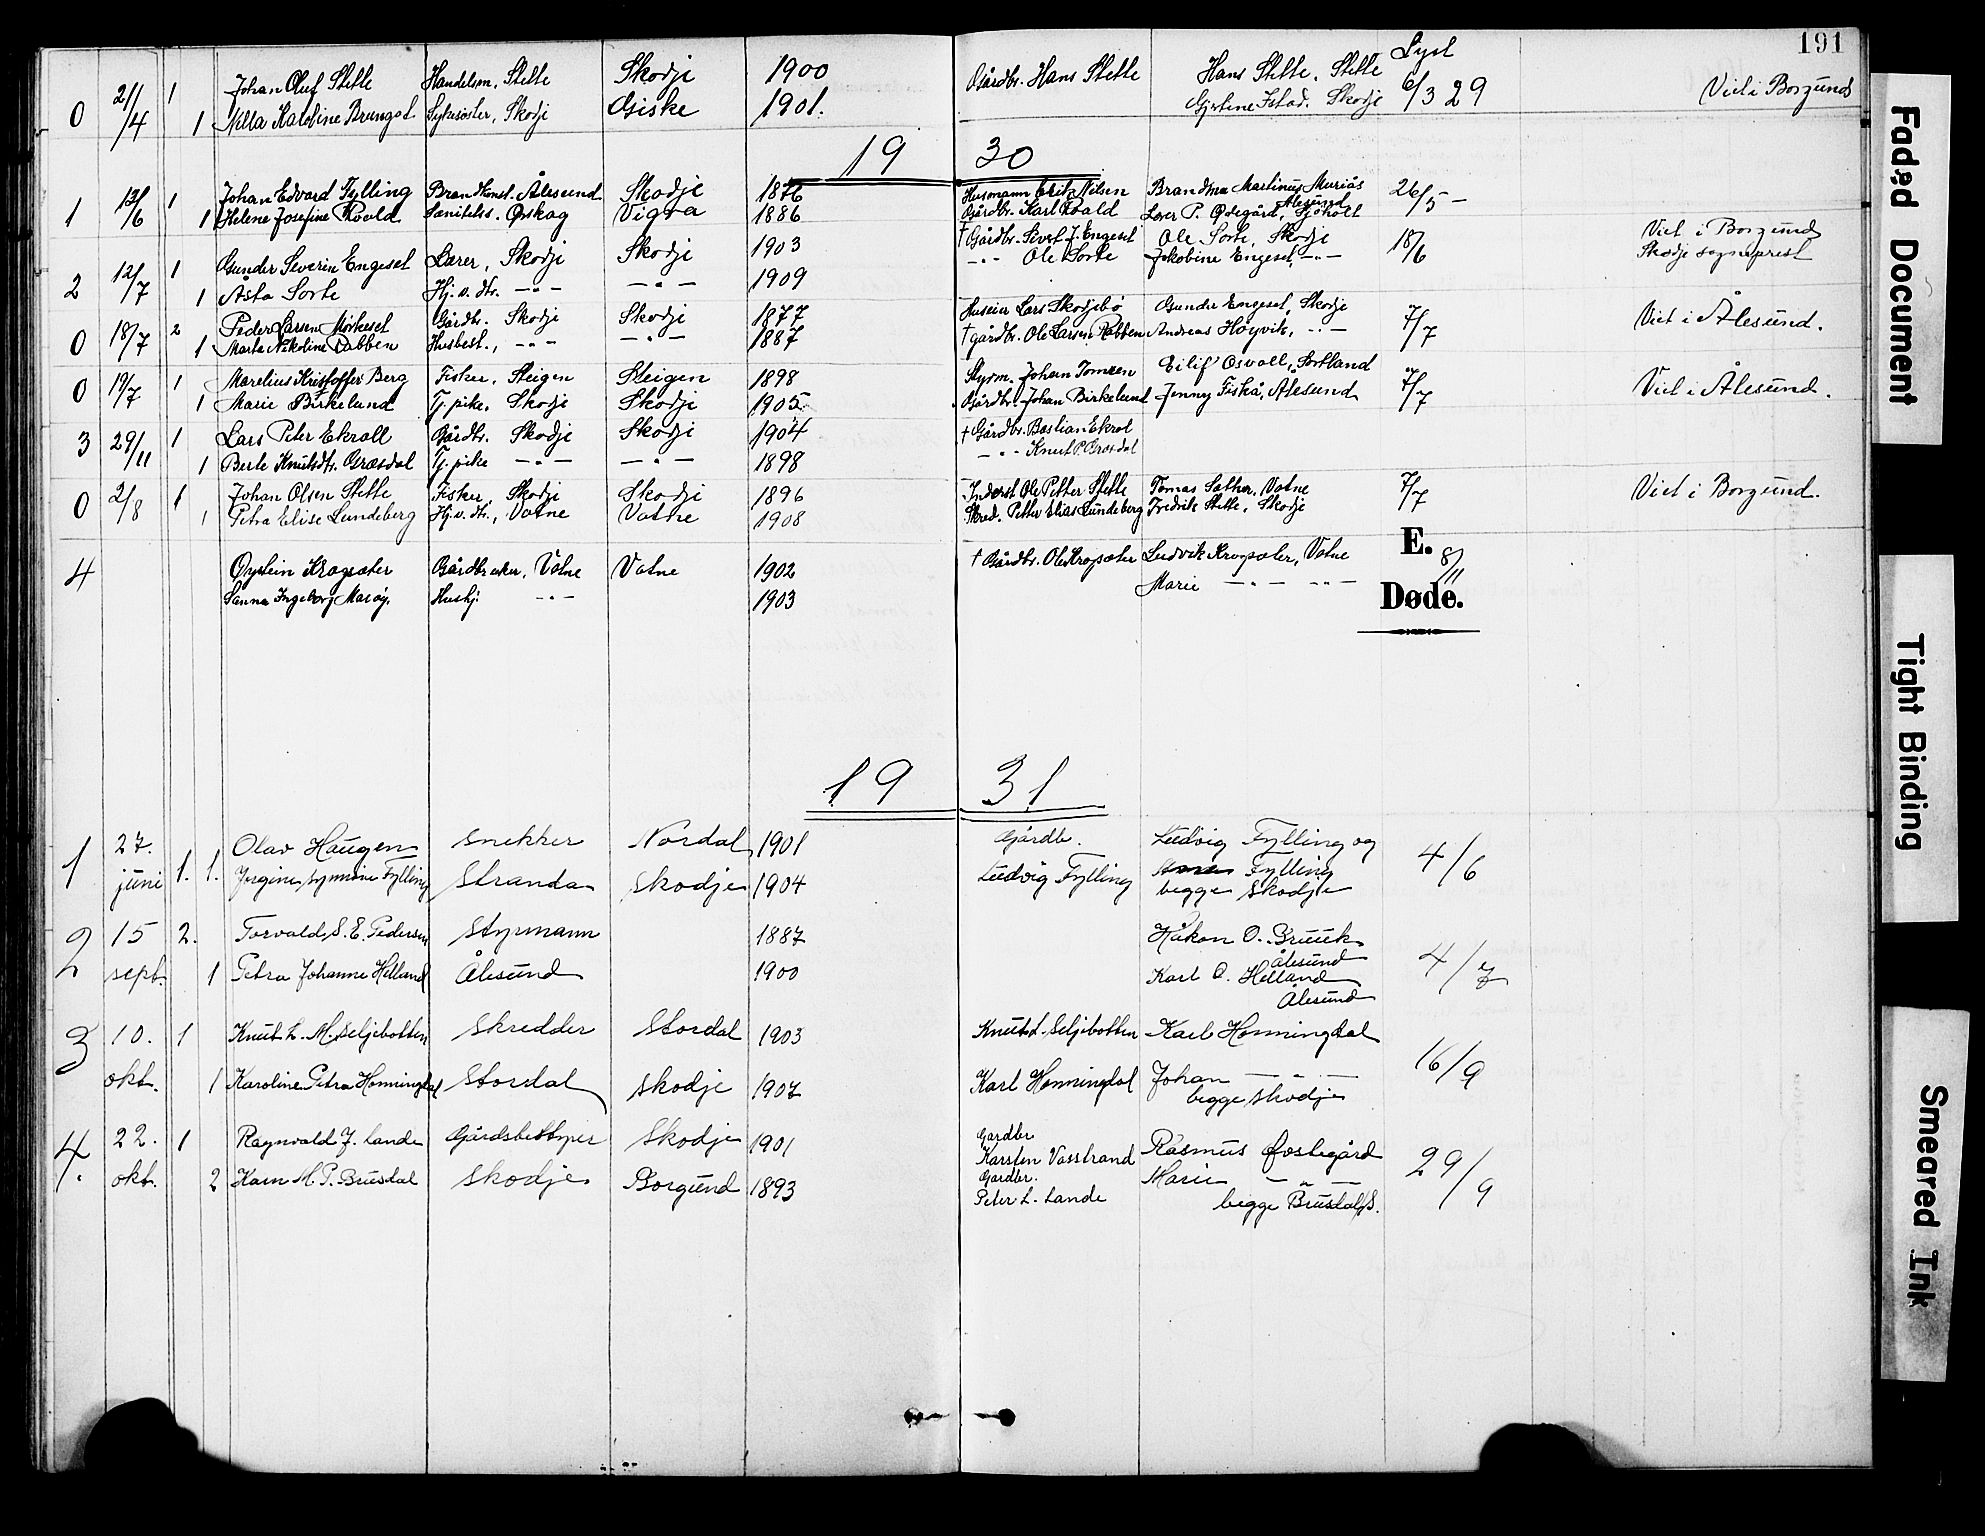 191
Lyst
0 21/4 1 Johan Oluf Stette Handelsm. Stette Skodje 1900 Gårdbr. Hans Stette Hans Stette, Stette 6/3 29 Viet i Borgund
1 Karoline Brungot Sykesöster, Skodje Giske 1901. Skodje
19 30
1 13/6 1 Johan Edvard Fylling Brandkonst. Ålesund Skodje 1876 Husmann Nilsen Brandm. Martinus 26/5 -
1 Helene Josefine Roald Ørskog Vigra 1886 Gårdbr. Karl Roald Lærer P. Ødegård, Sjøholt
Ålesund
2 12/7 1 Gunder Severin Engeset Lærer, Skodje Skodje 1903 † Gårdbr. Sivert J. Engeset Ole Sorte, Skodje 18/6 Viet i Borgund
1 Asta Sorte Hj.v. dtr. -"- -"- 1909 -"- Ole Sorte Jakobine Engeset, -"- Skodje sogneprest
0 18/7 2 Peder Larsen Mørkeset Gårdbr. Skodje Skodje 1877 Huseier Lars Skodjebø Gunder Engeset, Skodje 7/7 Viet i Ålesund.
1 Marta Nikoline Rabben Husbest., -"- -"- 1887 † gårdbr. Ole Larsen Rabben Andreas Høyvik, -"-
0 19/7 1 Marelius Kristoffer Berg Fisker, Steigen Steigen 1898 Styrm. Johan Eilif Osvoll, Sortland 7/7 Viet i Ålesund.
1 Marie Birkelund Tj. pike, Skodje Skodje 1905 Gårdbr. Johan Birkelund Jenny Fiskå, Ålesund
3 29/11 1 Lars Peter Ekroll Gårdbr. Skodje Skodje 1904 † Gårdbr. Bastian Ekrol
1 Berte Knutsdtr. Græsdal Tj. pike -"- -"- 1898 -"- Knut P. Græsdal
0 2/8 1 Johan Olsen Stette Fisker, Skodje Skodje 1896 Inderst Ole Petter Stette Tomas Sæther, Vatne 7/7 Viet i Borgund.
1 Petra Elise Lundeberg Hj.v. dtr., Vatne Vatne 1908 Skred. Petter Elias Lundeberg Fredrik Stette, Skodje
4 Øystein Krogsæter Gårdbruker, Vatne Vatne 1902 † Gårdbr. Ole Krogsæter Ludvik Krogsæter, Vatne 8/11
Sanna Ingeborg Hushj. -"- 1903 Marie -"- -"-
E.
Døde.
19 31
1 27. juni 1. Olav Haugen snekker Nordal 1901 Gårdb. Ludvig Fylling og 4/6
1. Jørgine Synnøve Fylling Stranda Skodje 1904 Ludvig Fylling Fylling
begge Skodje
2 15 sept. 2. Torvald S. E. Pedersen Styrmann 1887 Håkon O. 4/7
Ålesund
1 Petra Johanne Helland Ålesund 1900 Karl O. Helland
Ålesund
3 10. okt. 1 Knut L. M. Seljebotten Skredder Stordal 1903 Knut L. Seljebotten Karl Honningdal 16/9
1 Karoline Petra Honningdal Stordal Skodje 1907 Karl Honningdal Johan -"-
begge Skodje
4. 22. okt. 1 Ragnvald J. Lande Gårdsbestyrer Skodje 1901 Gardbr. Karsten Vasstrand Rasmus Østegård 29/9
2 Karn M. P. Brusdal Skodje Borgund 1893 Gardbr. Peter L. Lande Marie -"-
begge Brusdal, S.
Faded Document
Tight Binding
Smeared Ink